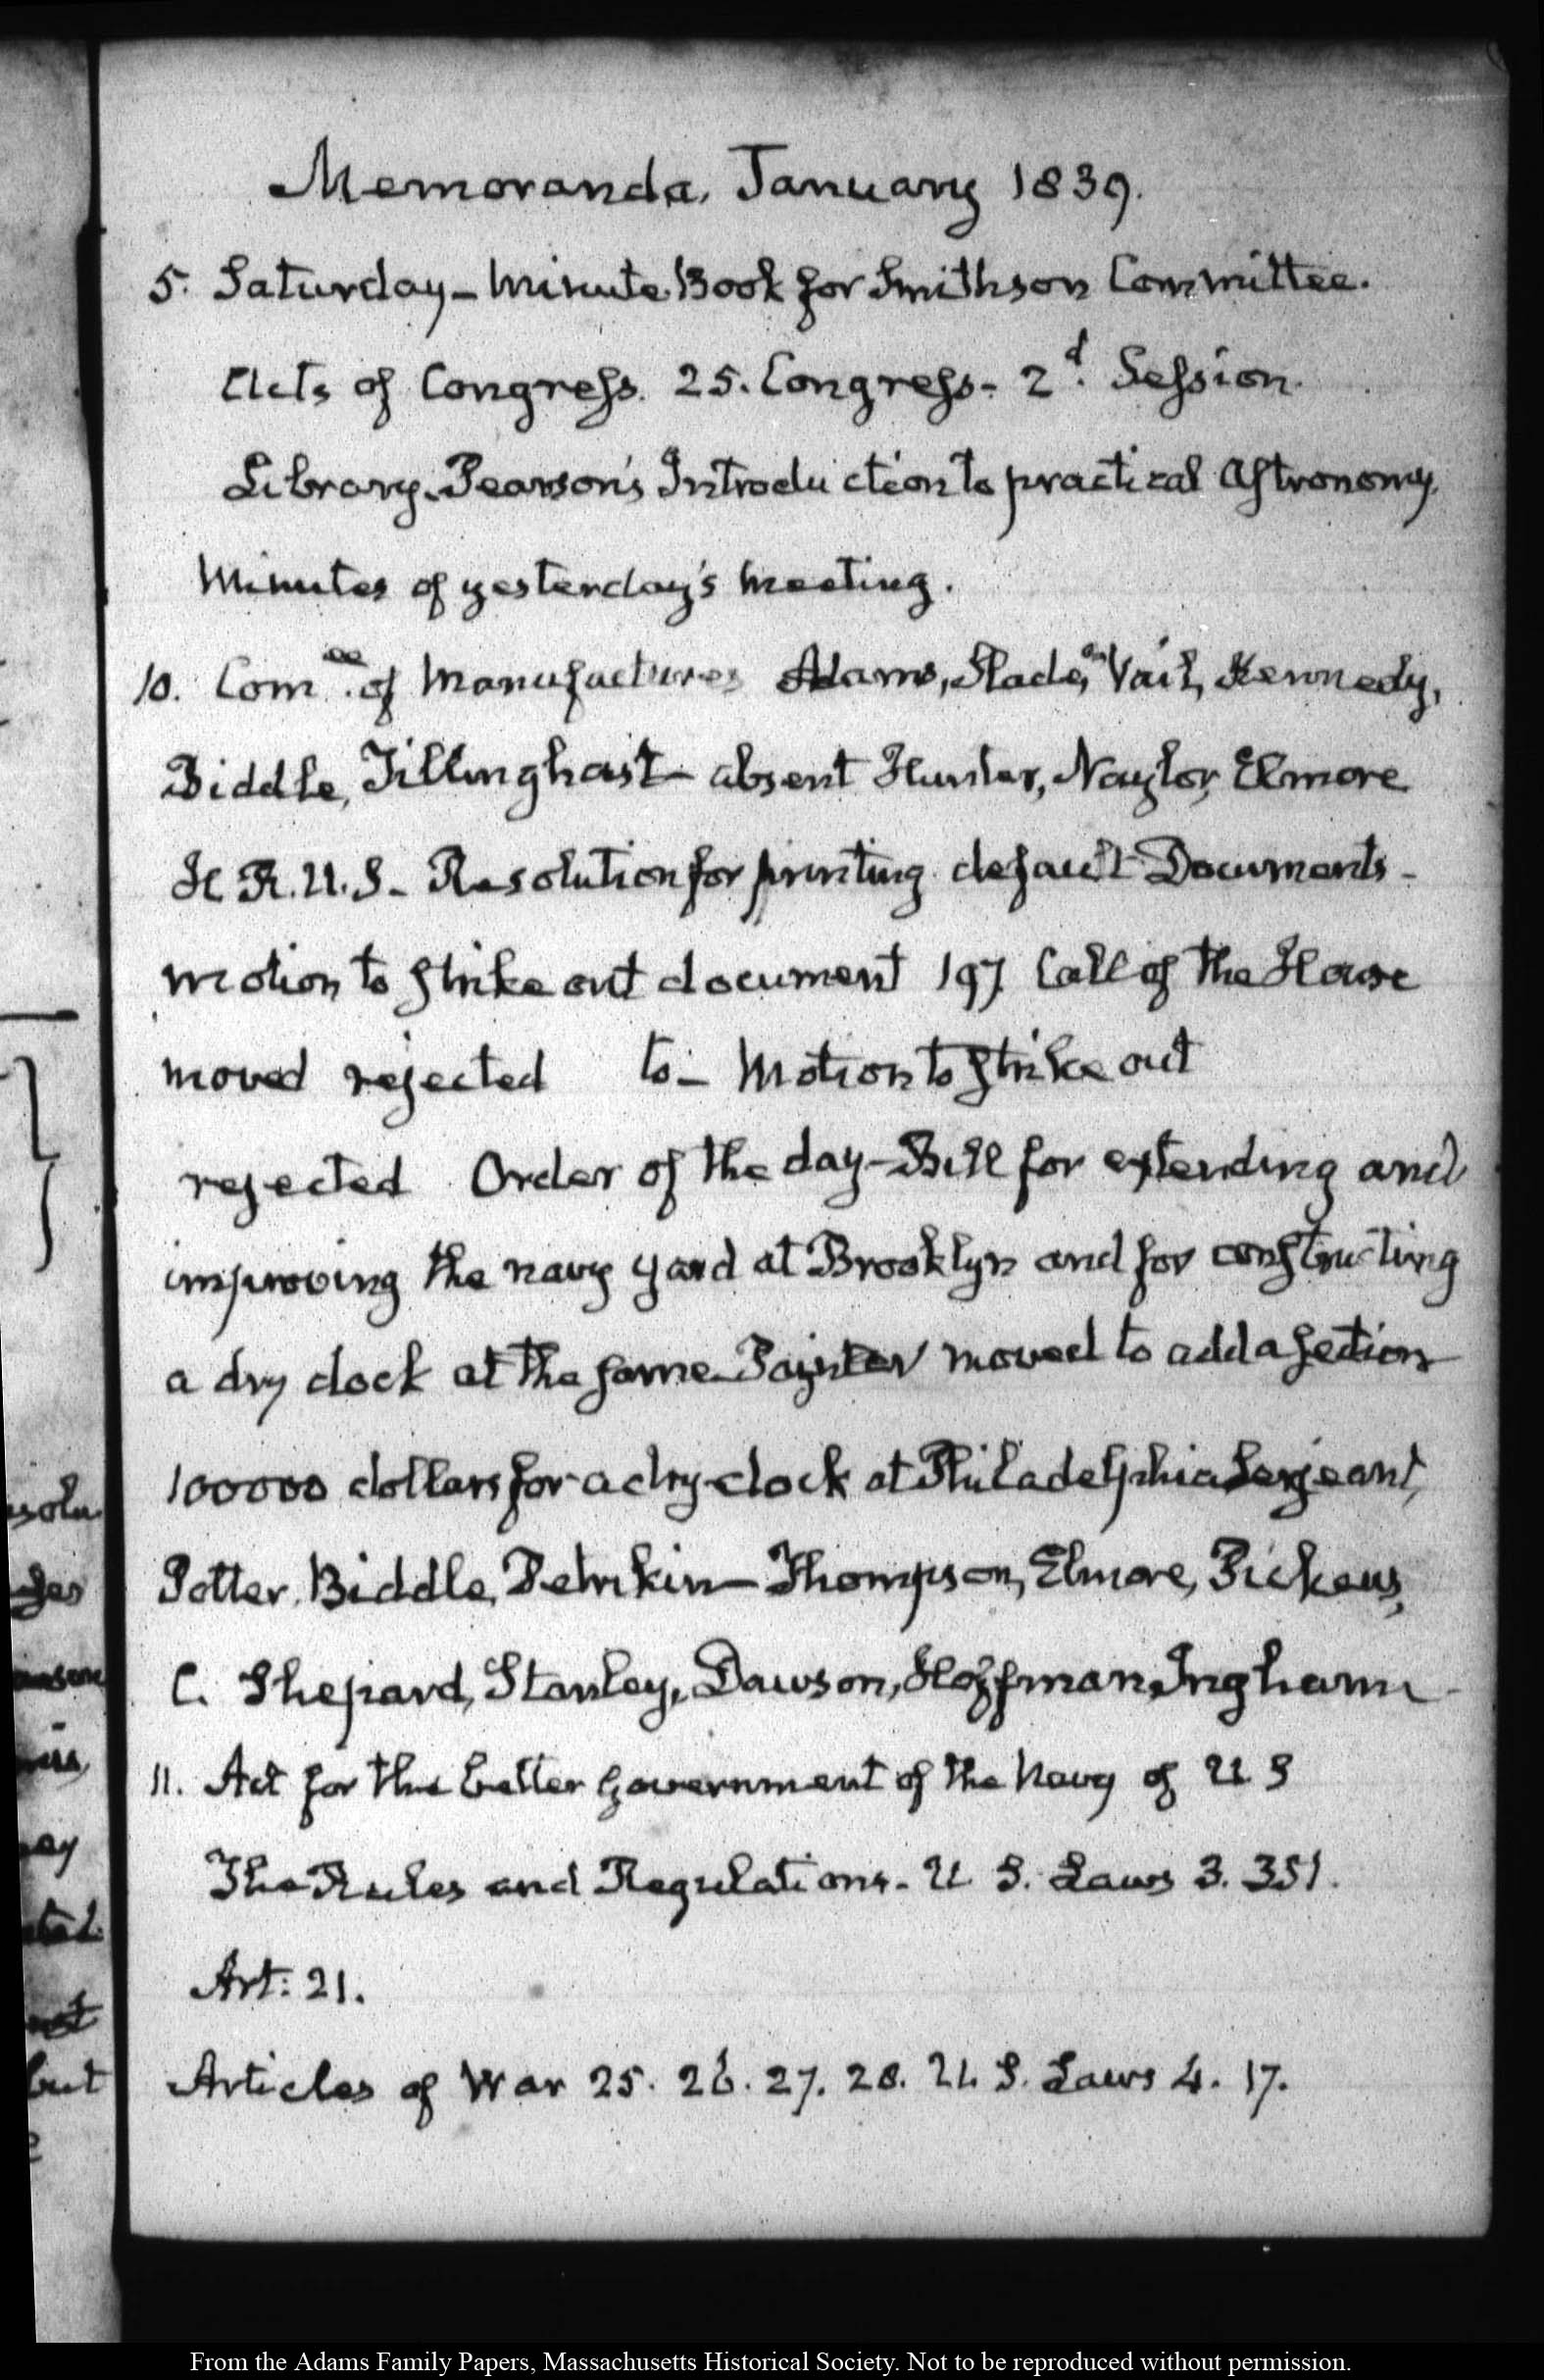 Memoranda, January 1839.
5. Saturday – Minute Book for Smithson Committee.
Acts of Congress. 25. Congress – 2d. Session.
Library. Pearson's Introduction to practical Astronomy.
Minutes of yesterday's meeting.
10. Comee. of Manufactures Adams, Slade, Vail, Kennedy,
Biddle, Tillinghast – absent Hunter, Naylor, Elmore
H. R. U. S – Resolution for printing default Documents –
motion to strike out document 197. Call of the House
moved rejected to – Motion to strike out
rejected Order of the day – Bill for extending and
improving the navy yard at Brooklyn and for constructing
a dry dock at the same. Paynter moved to add a section
100000 dollars for a dry-dock at Philadelphia Sergeant,
Potter, Biddle, Petrikin – Thompson, Elmore, Pickens,
C. Shepard, Stanley, Dawson, Hoffman, Ingham –
11. Act for the better government of the Navy of U S
The Rules and Regulations – U S. Laws 3. 351.
Art: 21.
Articles of War 25. 26. 27. 28. U. S. Laws 4. 17.
solu
ges
ay
but
From the Adams Family Papers, Massachusetts Historical Society. Not to be reproduced without permission.